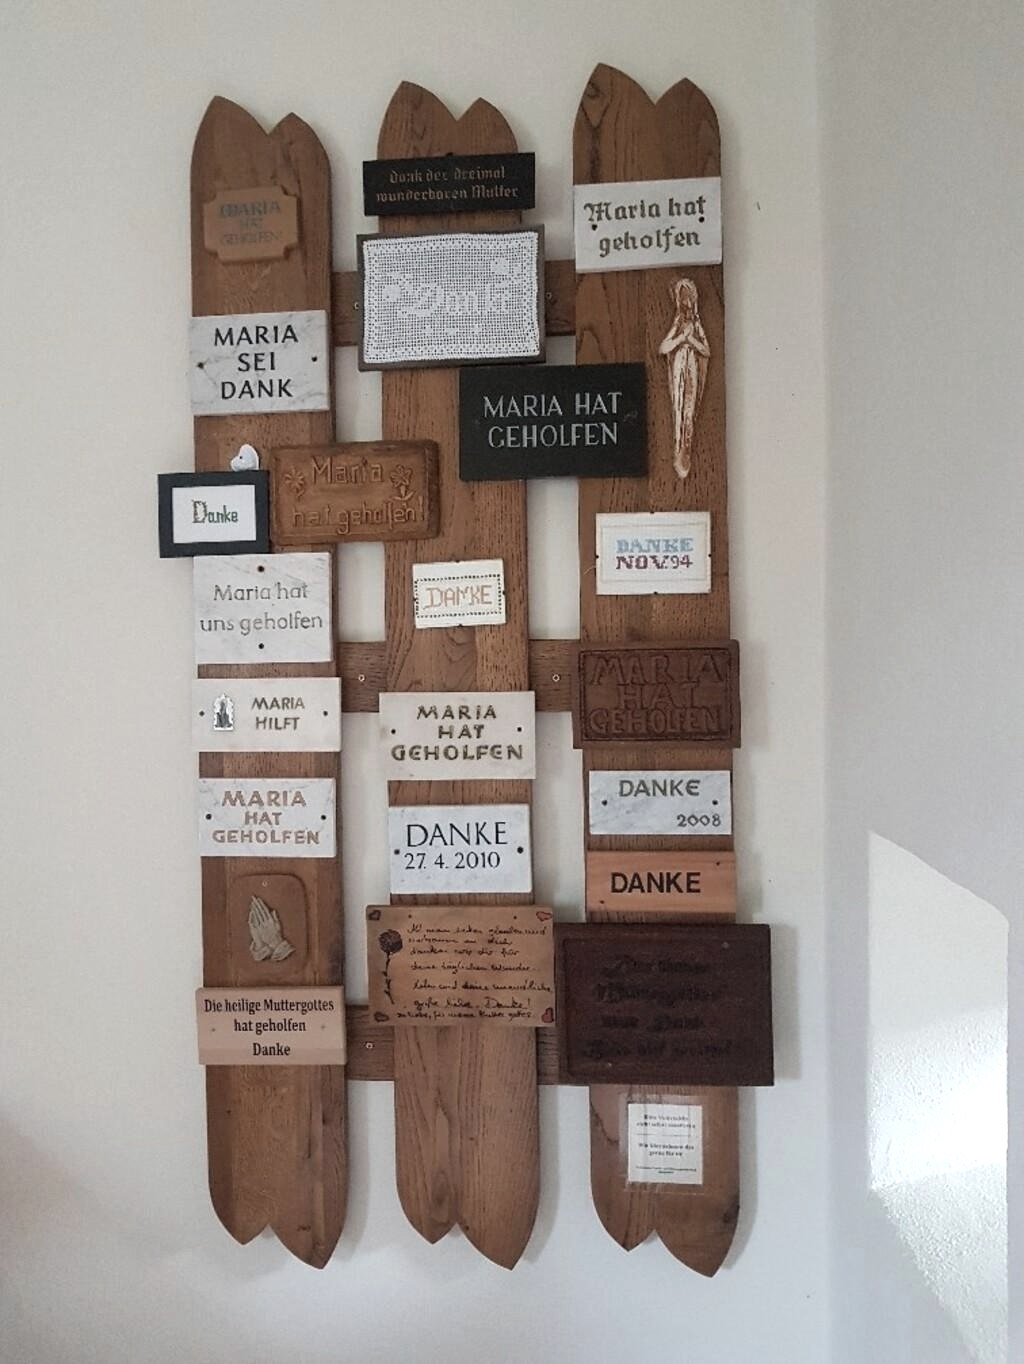 MARIA
HAT
GEHOLFEN!
MARIA
SEI
DANK
Danke
Maria
hat geholfen!
Maria hat
uns geholfen
MARIA
HILFT
MARIA
HAT
GEHOLFEN
Die heilige Muttergottes
hat geholfen
Danke
Dank der dreimal
wunderbaren Mutter
Danke
MARIA HAT
GEHOLFEN
DANKE
MARIA
HAT
GEHOLFEN
DANKE
27. 4. 2010
danken wir dir für
deine täglichen Wunder
große Liebe. Danke!
Maria hat
geholfen
DANKE
NOV. 94
MARIA
HAT
GEHOLFEN
DANKE
2008
DANKE